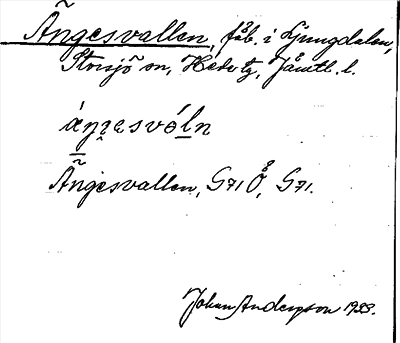 Ängesvallen, fäb. i Ljungdalen,
Storsjö sn, Hede tg, Jämtl. l.
áŋɛsvòln
Ängesvallen, G71 Ö, G71.
Johan Anderson 1933.